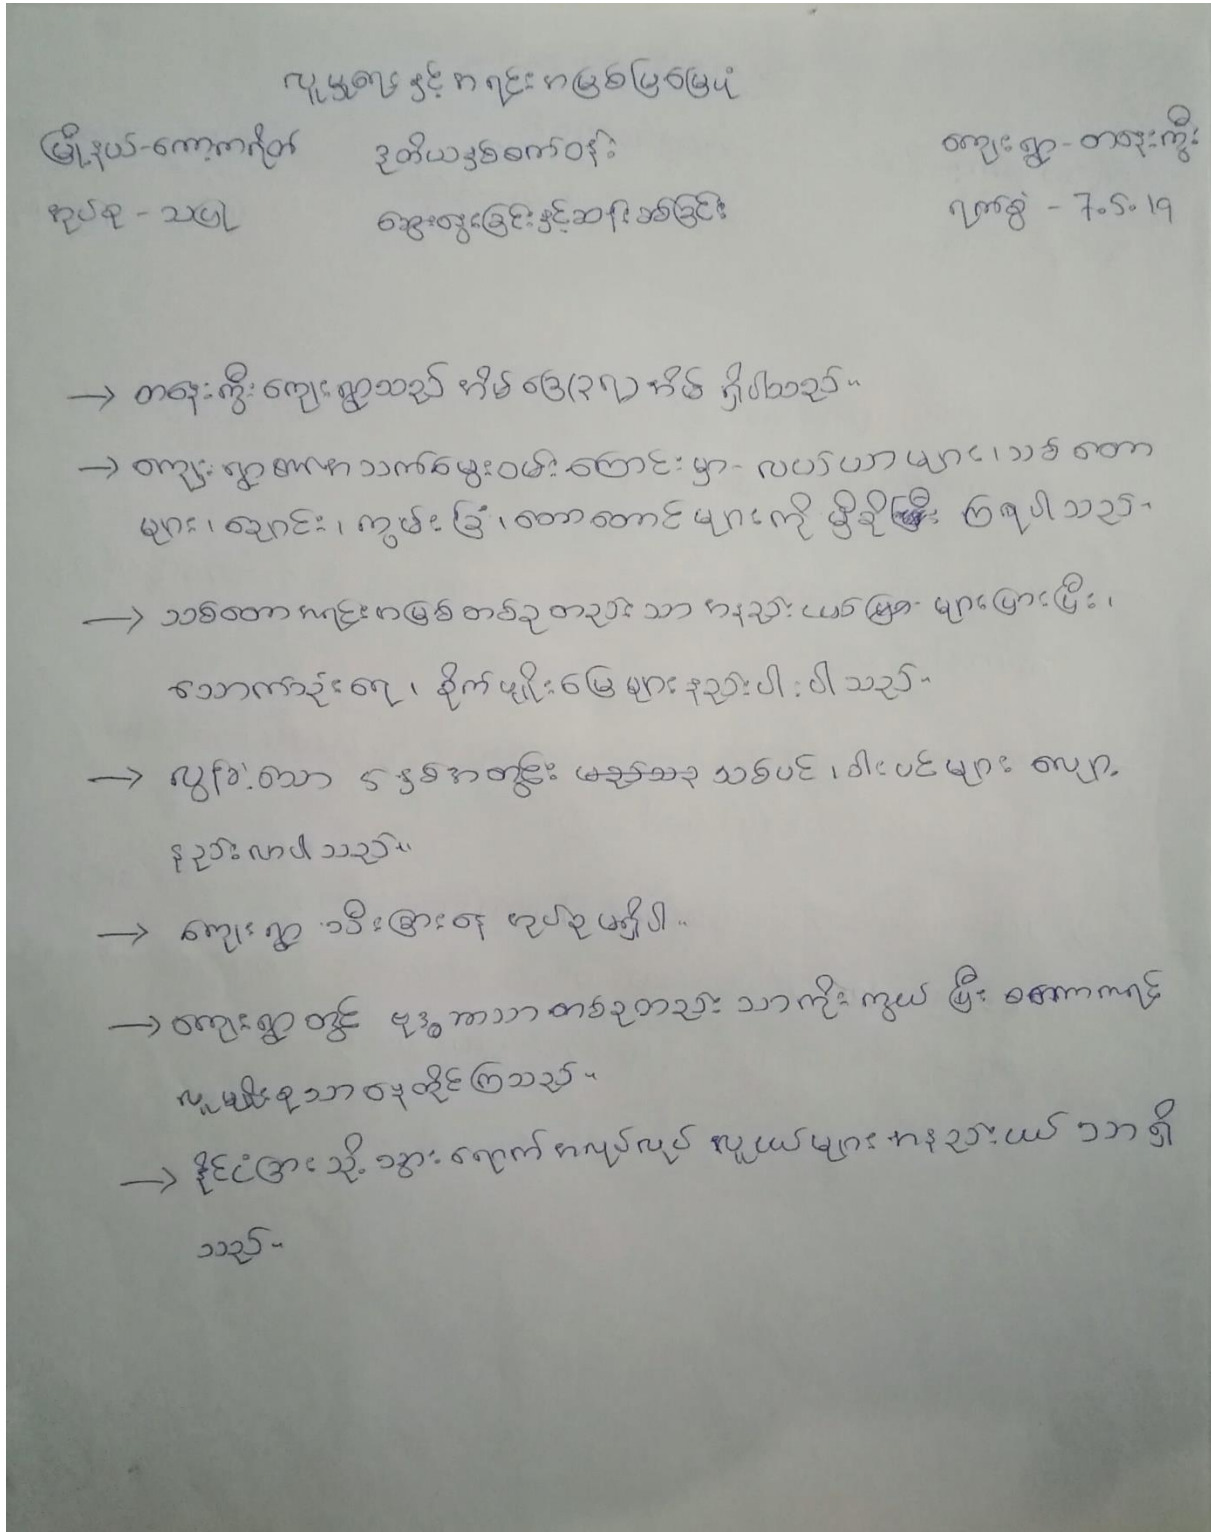 လူမှုရေးနှင့်အရင်းအမြစ်ပြမြေပုံ
မြို့နယ်-ကော့ကရိတ် ဒုတိယနှစ်စက်ဝန်း ကျေးရွာ-တနေးကွီး
အုပ်စု - သမျှ ဆွေးနွေးခြင်းနှင့်ဆန်းစစ်ခြင်း ရက်စွဲ - 7.5.19
→ တနေးကွီးကျေးရွာသည် အိမ်ခြေ(၃၇)အိမ် ရှိပါသည်။
→ ကျေးရွာ၏အသက်မွေးဝမ်းကြောင်းမှာ- လယ်ယာများ၊သစ်တော
များ၊ချောင်း၊ ကွမ်းခြံ၊တောတောင်များကို မှီခိုပြီး ကြရပါသည်။
→ သစ်တောအရင်းအမြစ်တစ်ခုတည်းသာ အနည်းငယ် များပြားပြီး၊
သောက်သုံးရေ၊ စိုက်ပျိုးမြေများနည်းပါးပါသည်။
→ လွန်ခဲ့သော ၄နှစ်အတွင်း သစ်ပင်၊ဝါးပင်များ လျော့
နည်းလာပါသည်။
→ ကျေးရွာ သီးခြားနေ အုပ်စုမရှိပါ။
→ ကျေးရွာတွင် ဗုဒ္ဓဘာသာတစ်ခုတည်းသာကိုးကွယ်ပြီး စကောကရင်
လူမျိုးစုသာနေထိုင်ကြသည်။
→ နိုင်ငံခြားသို့ သွားရောက်အလုပ်လုပ် လူငယ်များ အနည်းငယ်သာရှိ
သည်။